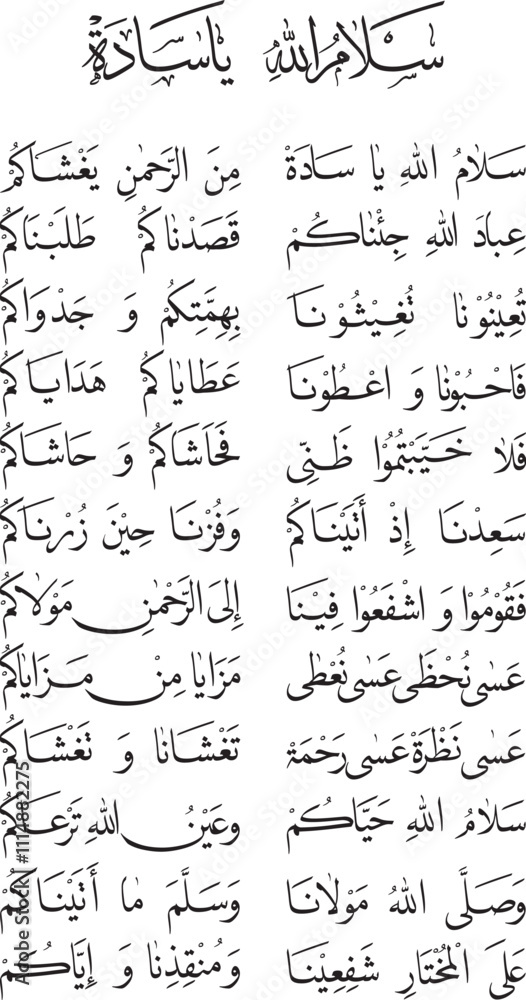 سَلَامُ اللهِ يَا سَادَةْ
سَلَامُ اللهِ يَا سَادَةْ مِنَ الرَّحْمٰنِ يَغْشَاكُمْ
عِبَادَ اللهِ جِئْنَاكُمْ قَصَدْنَاكُمْ طَلَبْنَاكُمْ
تُعِيْنُوْنَا تُغِيْثُوْنَا بِهِمَّتِكُمْ وَ جَدْوَاكُمْ
فَاحْبُوْنَا وَ اعْطُوْنَا عَطَايَاكُمْ هَدَايَاكُمْ
فَلَا خَيَّبْتُمُوْا ظَنِّى فَحَاشَاكُمْ وَ حَاشَاكُمْ
سَعِدْنَا إِذْ أَتَيْنَاكُمْ وَفُزْنَا حِيْنَ زُرْنَاكُمْ
فَقُوْمُوْا وَ اشْفَعُوْا فِيْنَا إِلَى الرَّحْمٰنِ مَوْلَاكُمْ
عَسٰى نُحْظٰى عَسٰى نُعْطٰى مَزَايَا مِنْ مَزَايَاكُمْ
عَسٰى نَظْرَةْ عَسٰى رَحْمَةْ تَغْشَانَا وَ تَغْشَاكُمْ
سَلَامُ اللهِ حَيَّاكُمْ وَعَيْنُ اللهِ تَرْعَاكُمْ
وَصَلَّى اللهُ مَوْلَانَا وَسَلَّمَ مَا أَتَيْنَاكُمْ
عَلَى الْمُخْتَارِ شَفِعِيْنَا وَمُنْقِذِنَا وَ إِيَّاكُمْ
Adobe Stock | #1114882275